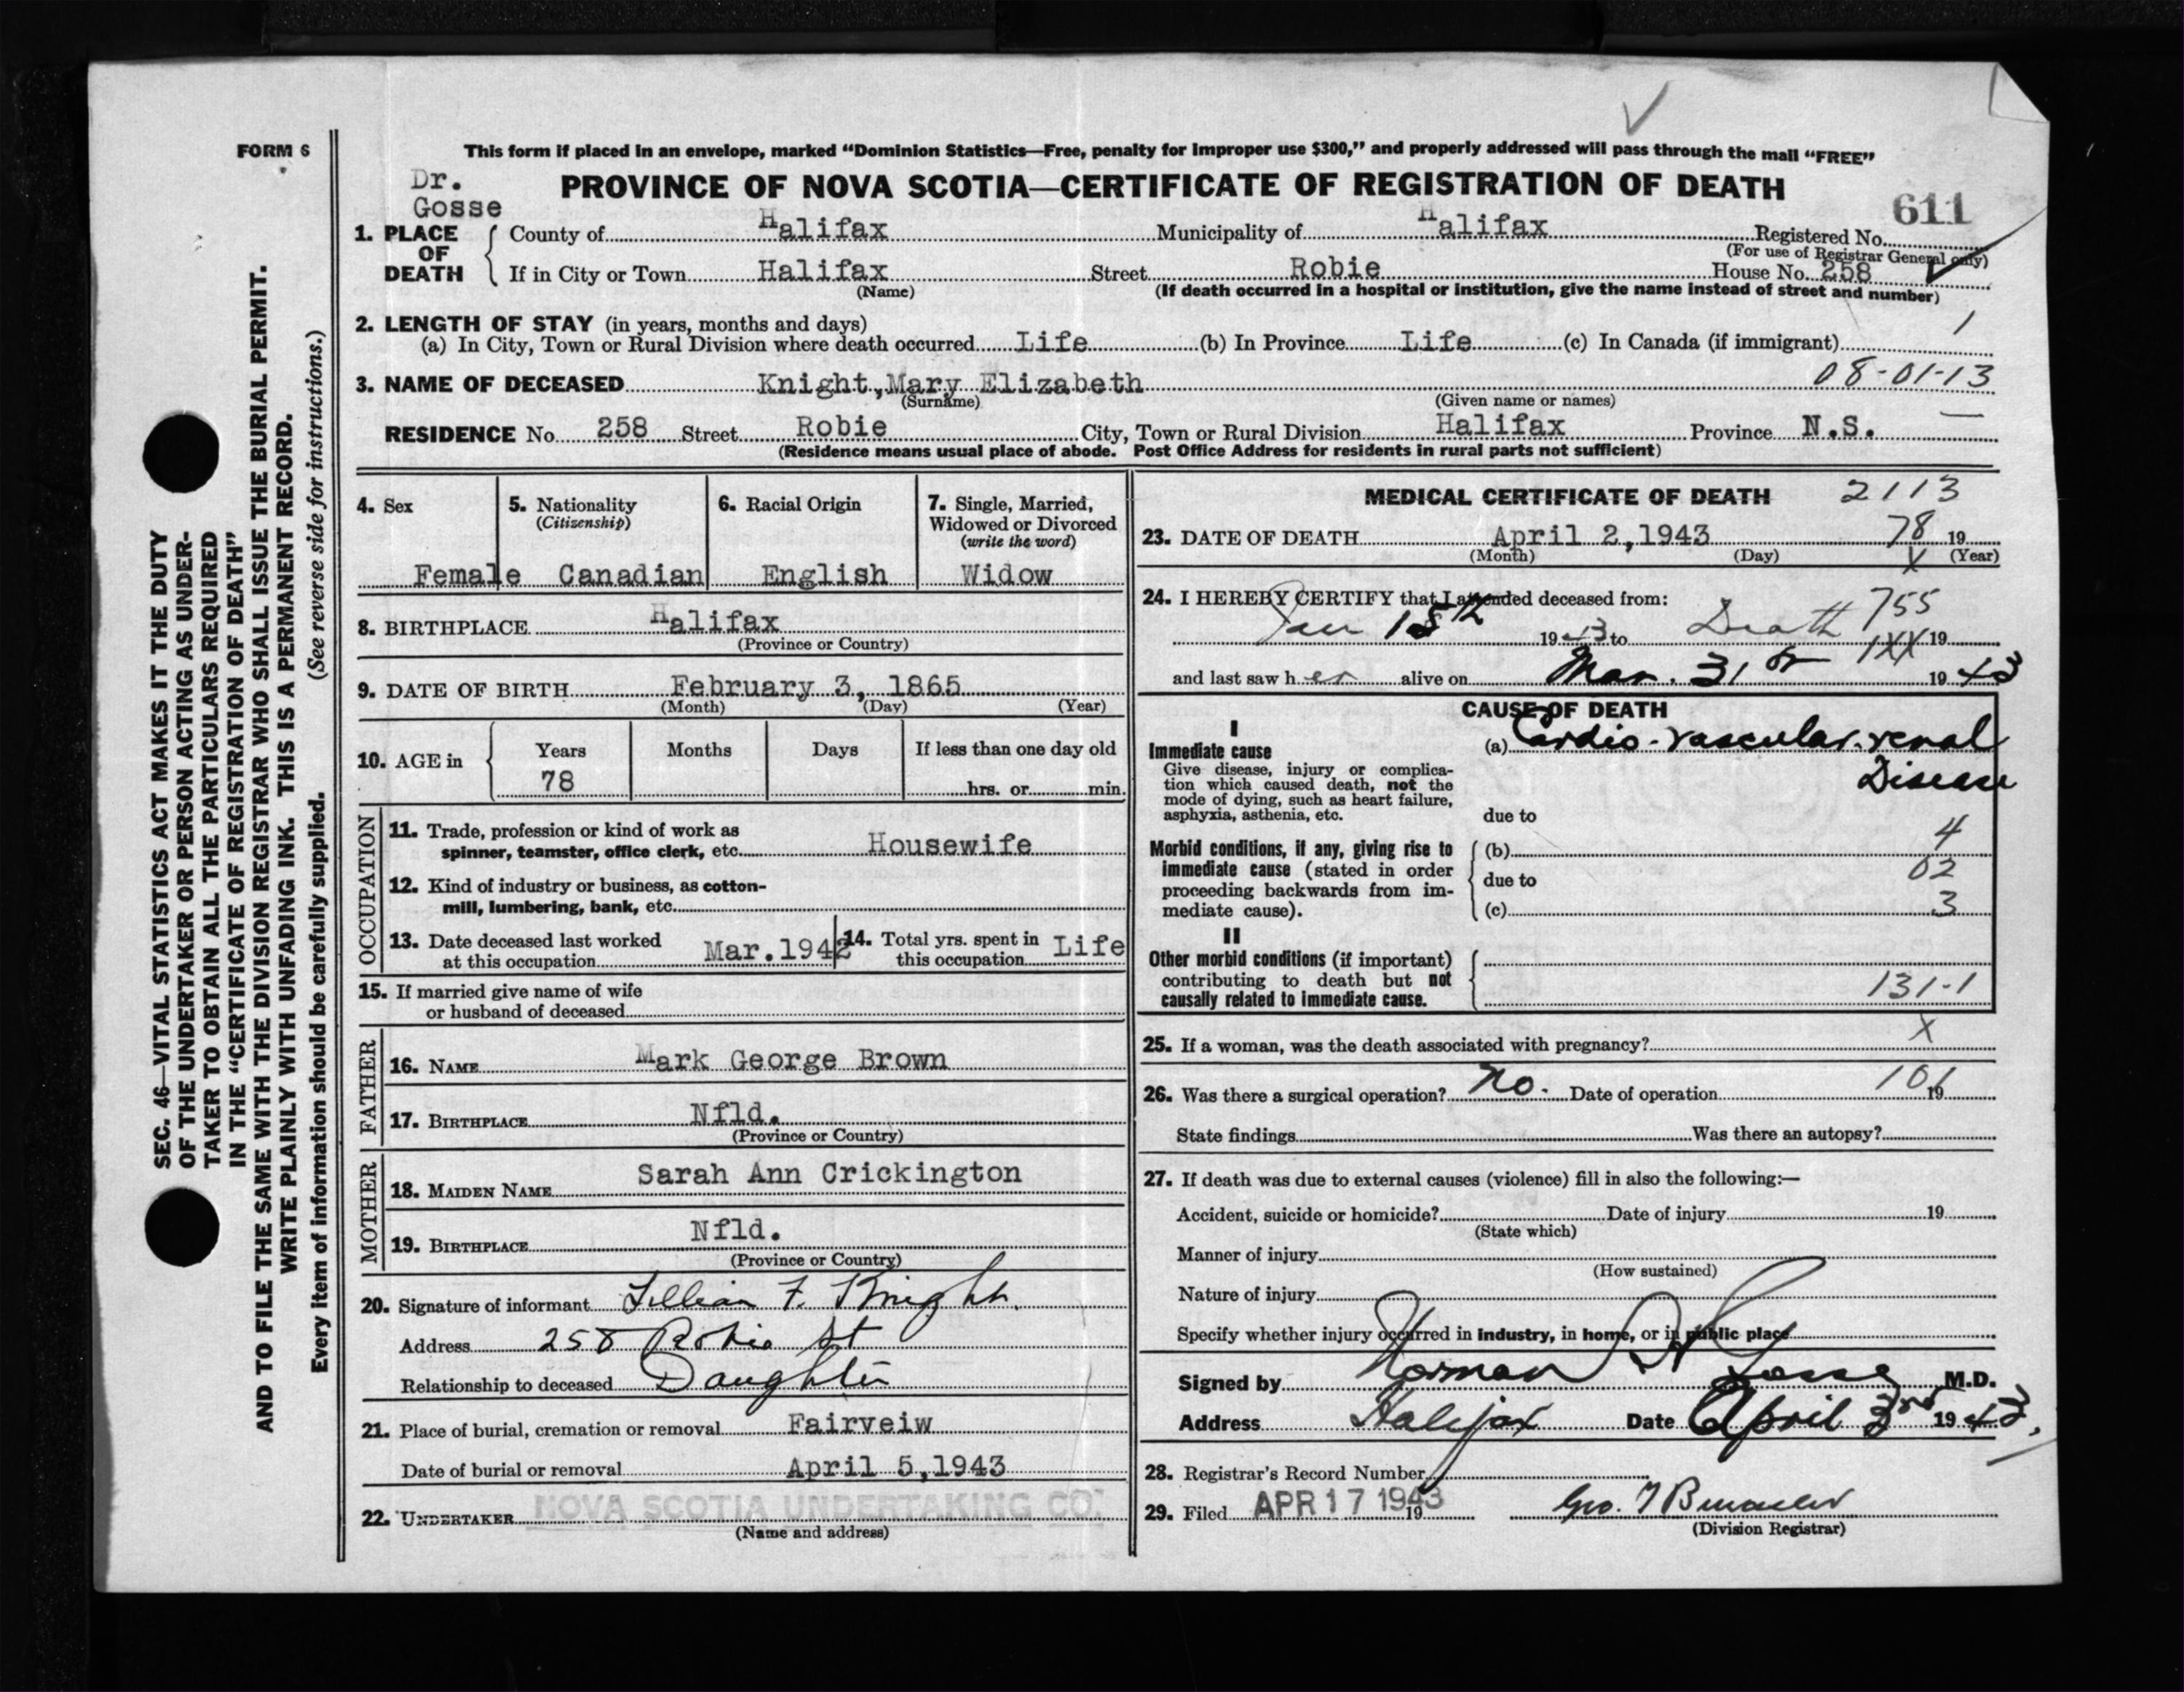 FORM 6
This form if placed in an envelope, marked “Dominion Statistics—Free, penalty for improper use $300,” and properly addressed will pass through the mail “FREE”
Dr.
Gosse
PROVINCE OF NOVA SCOTIA—CERTIFICATE OF REGISTRATION OF DEATH
611
1. PLACE OF DEATH
County of Halifax Municipality of Halifax Registered No.
(For use of Registrar General only)
If in City or Town Halifax Street Robie House No. 258
(Name) (If death occurred in a hospital or institution, give the name instead of street and number)
2. LENGTH OF STAY (in years, months and days) 1
(a) In City, Town or Rural Division where death occurred Life (b) In Province Life (c) In Canada (if immigrant)
3. NAME OF DECEASED Knight, Mary Elizabeth 08-01-13
(Surname) (Given name or names)
RESIDENCE No. 258 Street Robie City, Town or Rural Division Halifax Province N.S.
(Residence means usual place of abode. Post Office Address for residents in rural parts not sufficient)
4. Sex
Female
5. Nationality
(Citizenship)
Canadian
6. Racial Origin
English
7. Single, Married,
Widowed or Divorced
(write the word)
Widow
8. BIRTHPLACE Halifax
(Province or Country)
9. DATE OF BIRTH February 3, 1865
(Month) (Day) (Year)
10. AGE in
Years Months Days If less than one day old
78 hrs. or min.
OCCUPATION
11. Trade, profession or kind of work as
spinner, teamster, office clerk, etc. Housewife
12. Kind of industry or business, as cotton-
mill, lumbering, bank, etc.
13. Date deceased last worked
at this occupation Mar. 1942
14. Total yrs. spent in
this occupation Life
15. If married give name of wife
or husband of deceased
FATHER
16. NAME Mark George Brown
17. BIRTHPLACE Nfld.
(Province or Country)
MOTHER
18. MAIDEN NAME Sarah Ann Crickington
19. BIRTHPLACE Nfld.
(Province or Country)
20. Signature of informant Lillian F. Knight.
Address 258 Robie St
Relationship to deceased Daughter
21. Place of burial, cremation or removal Fairveiw
Date of burial or removal April 5, 1943
22. UNDERTAKER NOVA SCOTIA UNDERTAKING CO.
(Name and address)
MEDICAL CERTIFICATE OF DEATH 2113
23. DATE OF DEATH April 2, 1943 78 19
(Month) (Day) X (Year)
24. I HEREBY CERTIFY that I attended deceased from: 755
Jan 15th 1943 to Death 1XX 19
and last saw her alive on Mar. 31st 1943
CAUSE OF DEATH
I
Immediate cause
Give disease, injury or complica-
tion which caused death, not the
mode of dying, such as heart failure,
asphyxia, asthenia, etc.
(a) Cardio-vascular-renal
Disease
due to
Morbid conditions, if any, giving rise to
immediate cause (stated in order
proceeding backwards from im-
mediate cause).
(b) 4
due to 02
(c) 3
II
Other morbid conditions (if important)
contributing to death but not
causally related to immediate cause.
131-1
25. If a woman, was the death associated with pregnancy? X
26. Was there a surgical operation? No. Date of operation 101 19
State findings Was there an autopsy?
27. If death was due to external causes (violence) fill in also the following:—
Accident, suicide or homicide? Date of injury 19
(State which)
Manner of injury
(How sustained)
Nature of injury
Specify whether injury occurred in industry, in home, or in public place
Signed by Norman H Gosse M.D.
Address Halifax Date April 3rd 1943.
28. Registrar's Record Number
29. Filed APR 17 1943 19 Geo.
(Division Registrar)
SEC. 46—VITAL STATISTICS ACT MAKES IT THE DUTY
OF THE UNDERTAKER OR PERSON ACTING AS UNDER-
TAKER TO OBTAIN ALL THE PARTICULARS REQUIRED
IN THE “CERTIFICATE OF REGISTRATION OF DEATH”
AND TO FILE THE SAME WITH THE DIVISION REGISTRAR WHO SHALL ISSUE THE BURIAL PERMIT.
WRITE PLAINLY WITH UNFADING INK. THIS IS A PERMANENT RECORD.
Every item of information should be carefully supplied. (See reverse side for instructions.)